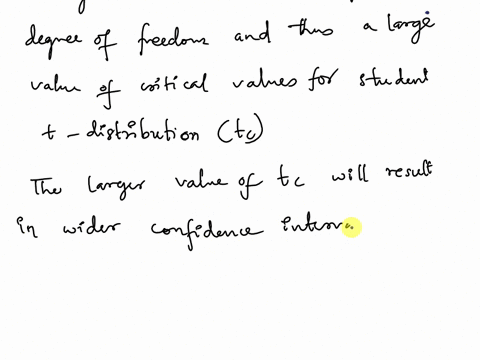 degree of freedom and thus a large
value of critical values for student
t - distribution (tc)
The larger value of tc will result
in wider confidence interv